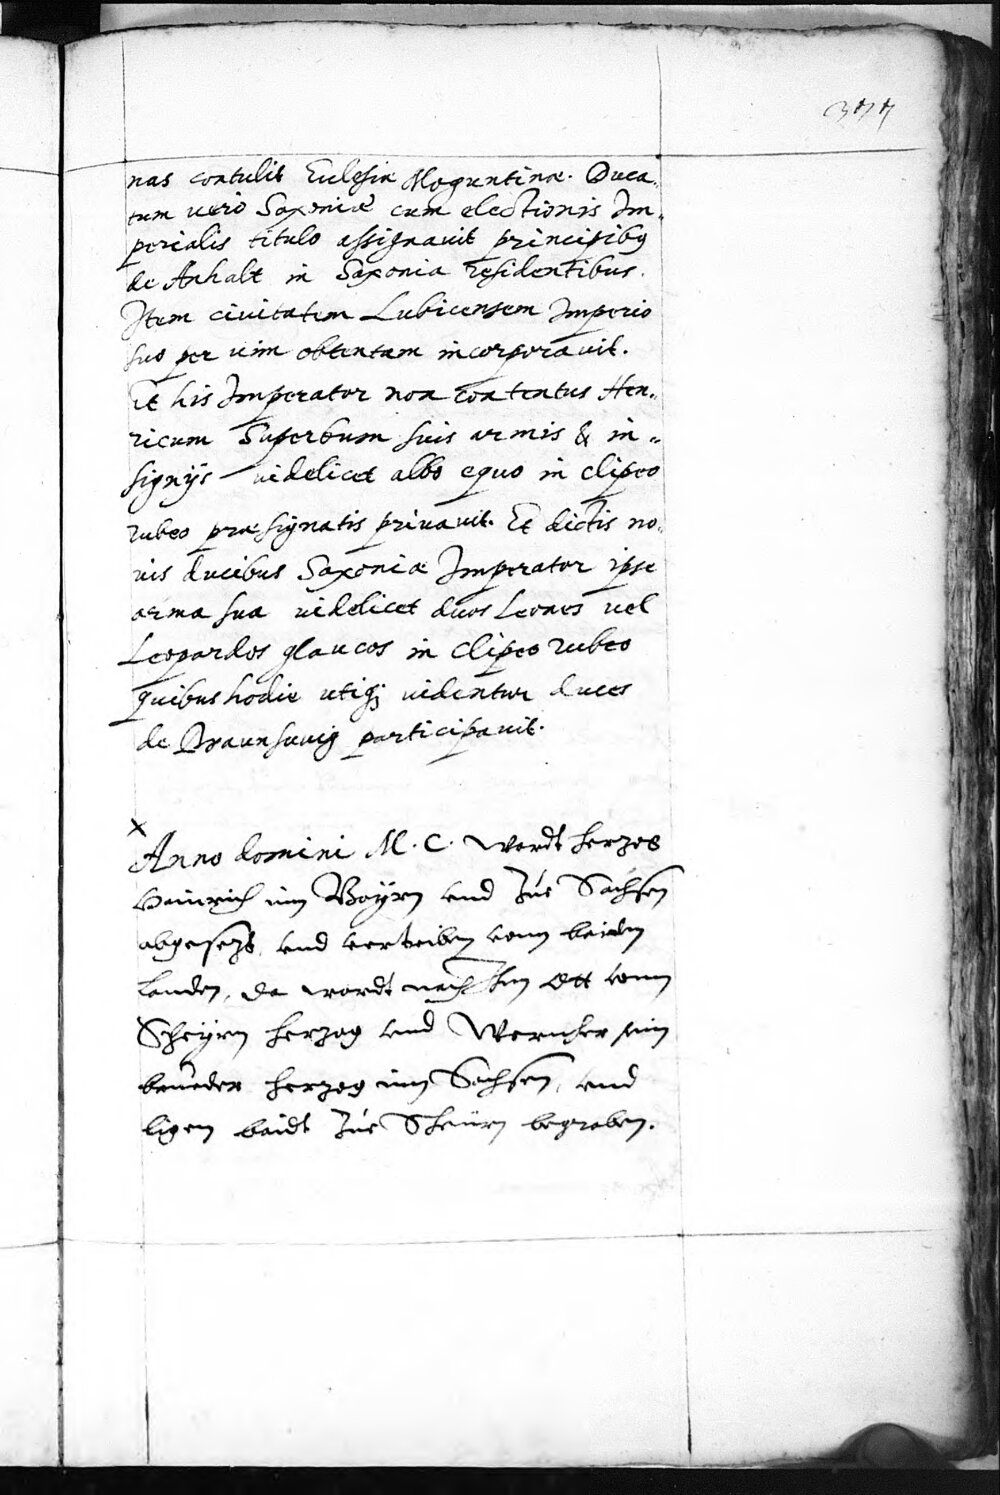 377
nas contulit Eclesiæ Moguntinæ. Duca„
tum uero Saxoniæ cum electionis Im„
perialis titulo assignauit principibus
de Anhalt in Saxonia residentibus.
Item ciuitatem Lubicensem Imperio
suo per uim obtentam incorporauit.
Et his Imperator non contentus Hen„
ricum Superbum suis armis & in„
signijs uidelicet albo equo in clipeo
rubeo præsignatis priuauit. Et dictis no„
uis ducibus Saxoniæ Imperator ipse
arma sua uidelicet duos Leones uel
Leopardos glaucos in clipeo rubeo
quibus hodie utiqꝫ uidentur duces
de Braunsuuig participauit.
x
Anno domini M. C. wardt herzog
Hainrich inn Bayrn vnd Zue Sachsen
abgesezt, vnd vertriben vonn beiden
Landen, da wardt nach ihm Ott vonn
Scheyrn herzog vnd Wernher sein
brueder herzog inn Sachsen, vnd
ligen baidt Zue Scheurn begraben.